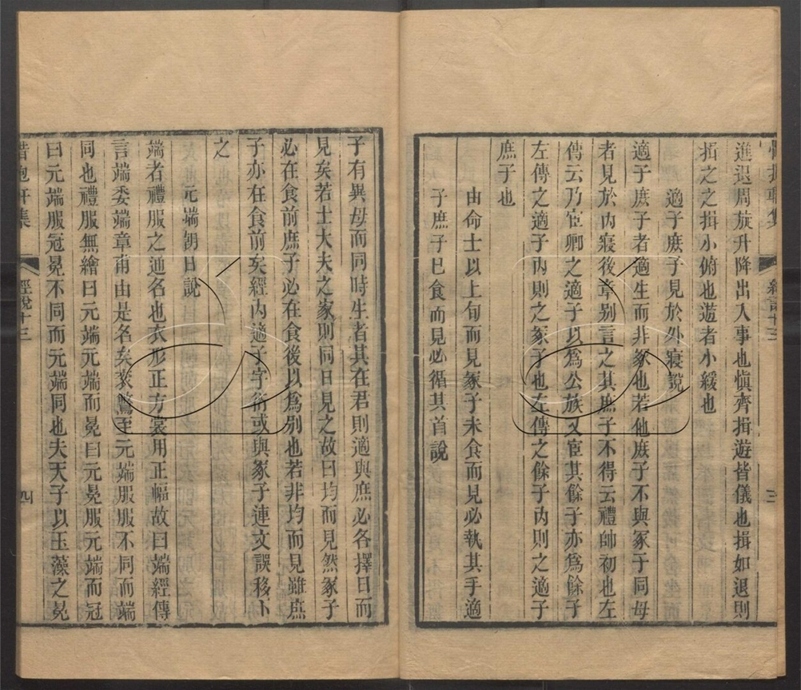 進退周旋升降出入事也慎齊揖遊皆儀也揖如退則
揖之之揖小俯也遊者小緩也
適子庶子見於外寢說
適子庶子者適生而非冢也若他庶子不與冢子同母
者見於內寢後章別言之其庶子不得云禮帥初也左
傳云乃宦卿之適子以為公族又宦其餘子亦為餘子
左傳之適子內則之冢子也左傳之餘子內則之適子
庶子也
由命士以上旬而見冢子未食而見必執其手適
子庶子已食而見必循其首說
經說十三
三
子有異母而同時生者其在君則適與庶必各擇日而
見矣若士大夫之家則同日見之故曰均而見然冢子
必在食前庶子必在食後以為別也若非均而見雖庶
子亦在食前矣經內適子字衍或與冢子連文誤移下
之
元端朝日說
端者禮服之通名也衣形正方裳用正幅故曰端經傳
言端委端章甫由是名矣袞鷩至元端服服不同而端
同也禮服無繪曰元端元端而冕曰元冕服元端而冠
曰元端服冠冕不同而元端同也夫天子以玉藻之冕
惜抱軒集
經說十三
四